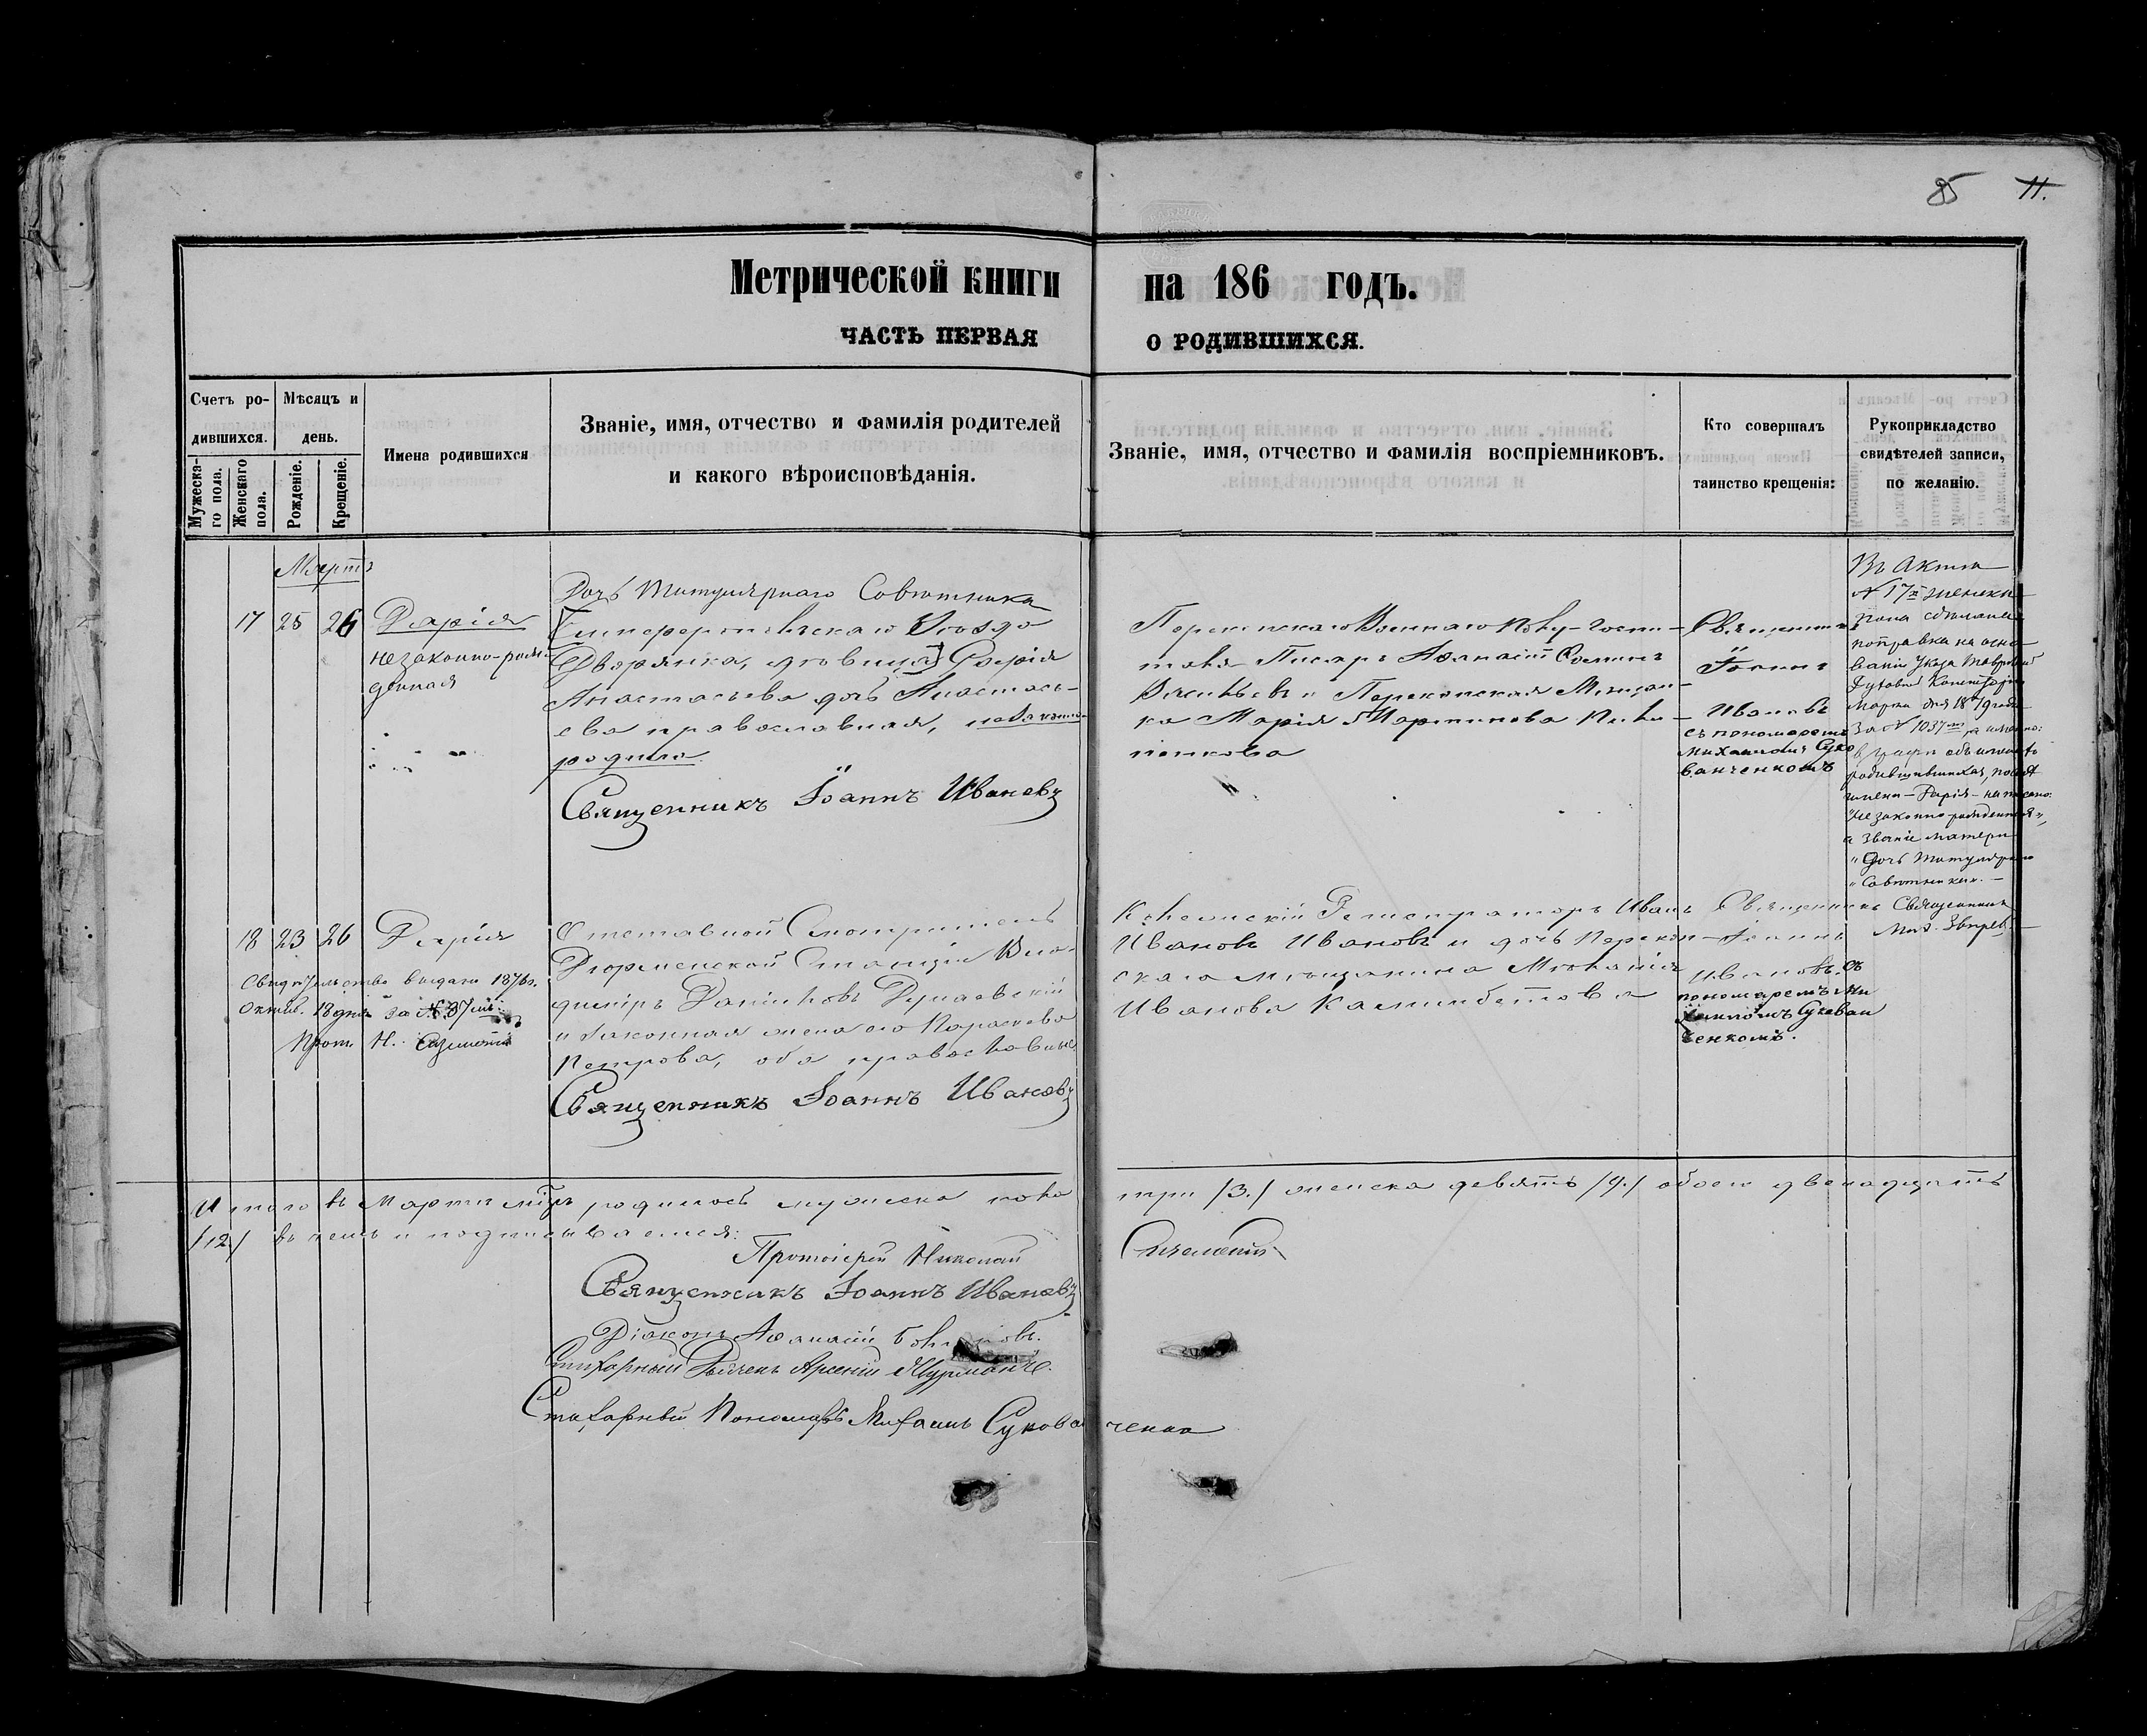 85 11.
Метрической книги на 186 годъ.
ЧАСТЬ ПЕРВАЯ О РОДИВШИХСЯ.
Счетъ ро-
дившихся.
Мужеска-
го пола.
Женскаго
пола.
Мѣсяцъ и
день.
Рожденіе.
Крещеніе.
Имена родившихся
Званіе, имя, отчество и фамилія родителей
и какого вѣроисповѣданія.
Званіе, имя, отчество и фамилія воспріемниковъ.
Кто совершалъ
таинство крещенія:
Рукоприкладство
свидѣтелей записи,
по желанію.
Мартъ
17 25 26
Дарія
незаконно-рож-
денная
Дочь Титулярнаго Совѣтника
Симферопольскаго Уѣзда
Дворянка, дѣвица Софія
Анастасьева дочь Анастась-
ева православная, незаконно
родила.
Священникъ Іоаннъ Ивановъ
Перекопскаго Военнаго Полу-Госпи-
таля Писарь Аѳанасій
Васильевъ и Перекопская Мѣщан-
ка Марія Мартинова
Священникъ
Іоаннъ
Ивановъ
съ пономаремъ
Михаиломъ Суко
ванченкомъ
Въ Актѣ
№ 17 женска
пола сдѣлана
поправка на осно
ваніи Указа Таврической
Духовной Консисторіи
Марта дня 1879 года
За № 1037 а именно:
въ графѣ объ имени
родившихся, послѣ
имени - Дарія - написано:
"незаконно-рожденная",
а званіе матери
"Дочь Титулярнаго
"Совѣтника. -
Священникъ
18 23 26
Дарія
Свидѣтельство выдано 1876г.
Октяб. 18 дня за №
Прот. Н.
Отставной Смотритель
Дюрменской Станціи Вла-
димиръ Даниловъ Дунаевскій
и законная жена его Параскева
Петрова, оба православные
Священникъ Іоаннъ Ивановъ
Коллежскій Регистраторъ Иванъ
Ивановъ Ивановъ и дочь Перекоп-
скаго мѣщанина Меланія
Иванова
Священникъ
Іоаннъ
Ивановъ съ
пономаремъ Ми
хаиломъ Сукован
ченкомъ.
Итого въ Мартѣ мѣсяцѣ родилось мужеска пола три /3./ женска девять /9./ обоего двенадцать
/12/ въ чемъ и подписываемся:
Протоіерей Николай
Священникъ Іоаннъ Ивановъ
Діаконъ Аѳанасій
Стихарный Дьячекъ Арсеній
Стихарный Пономарь Михаилъ Сукованченко